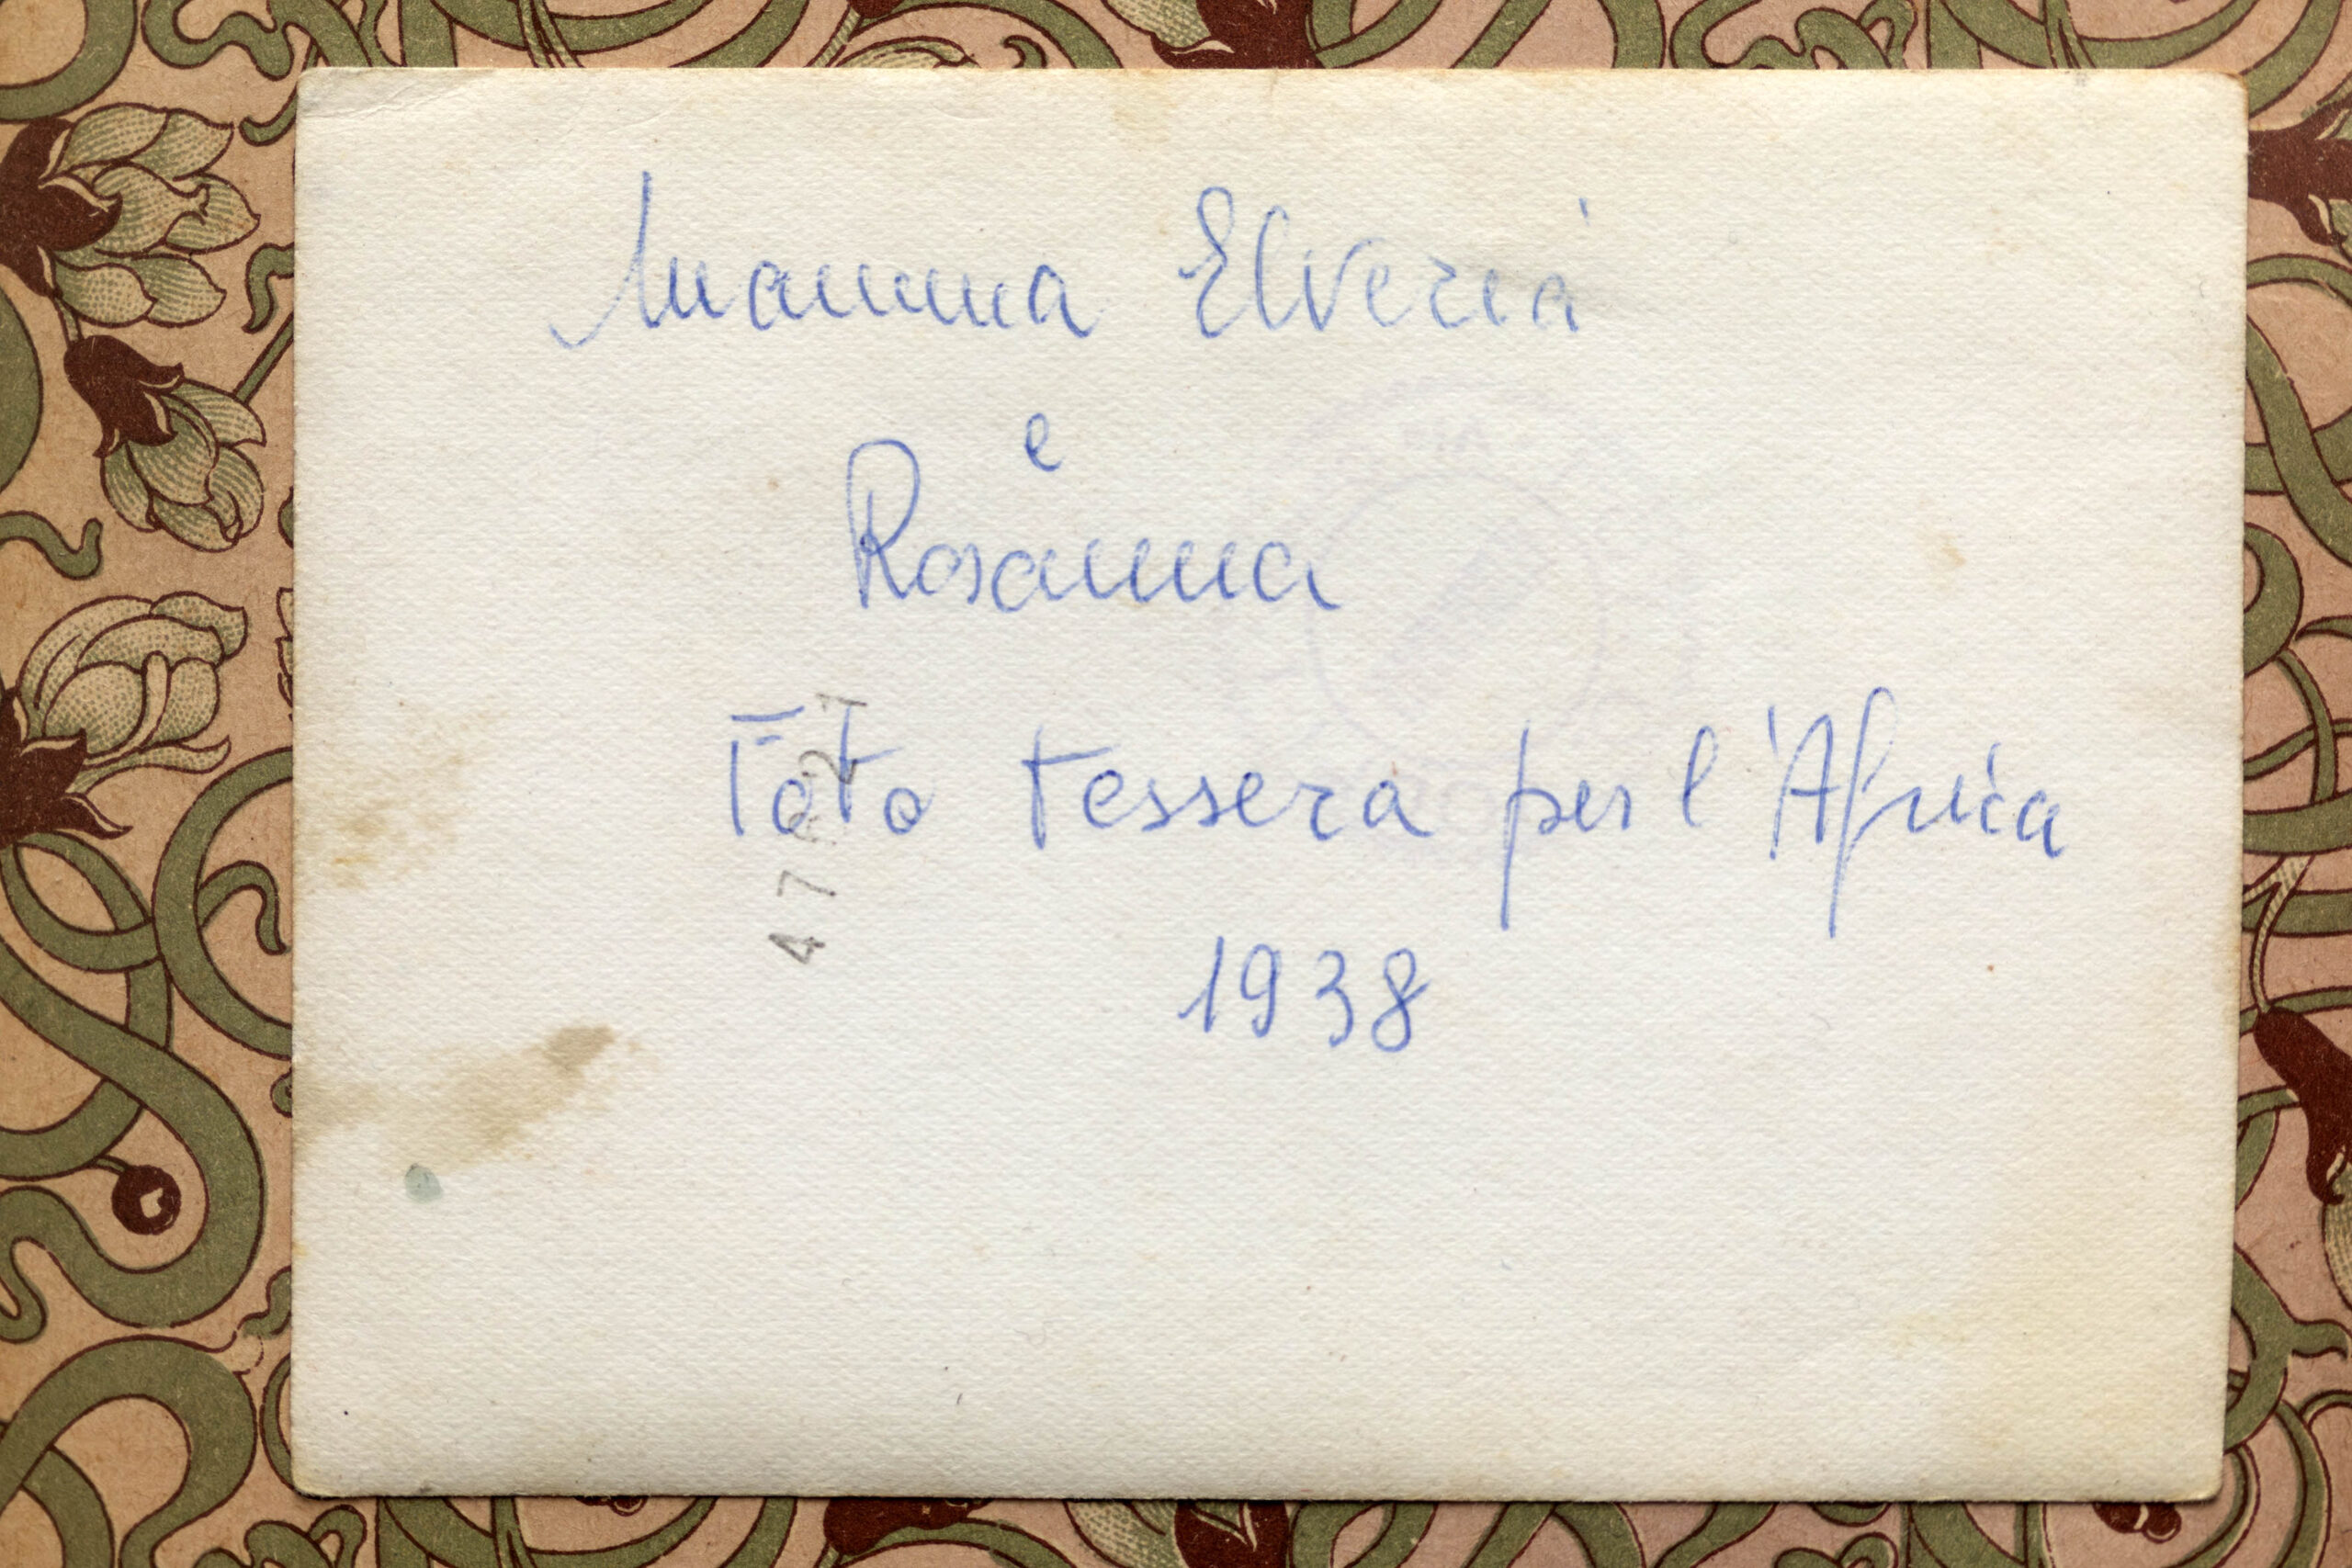 Mamma Elveria
e
Rosanna
Foto tessera per l'Africa
1938